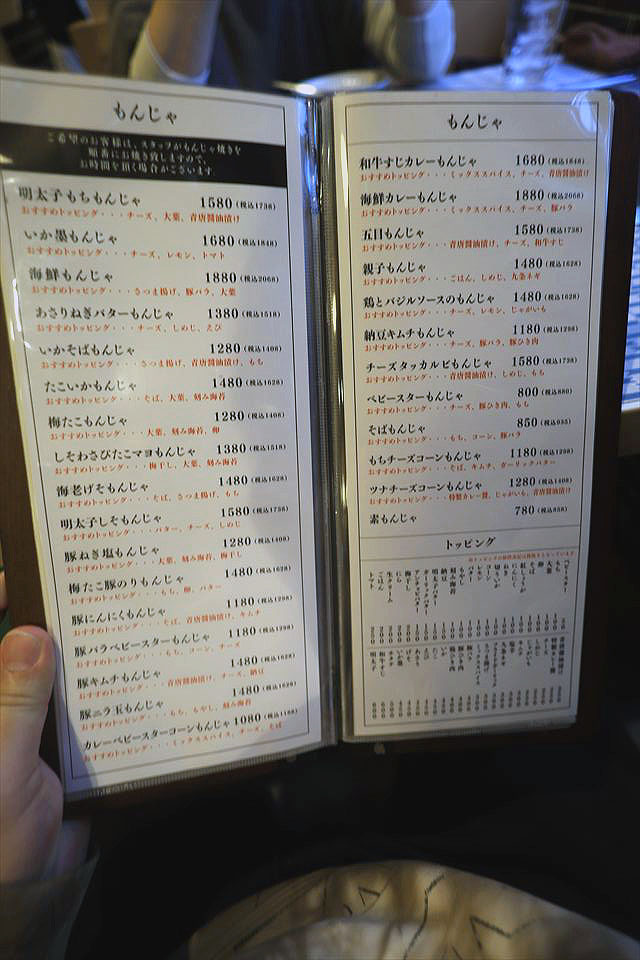 もんじゃ
ご希望のお客様は、スタッフがもんじゃ焼きを
順番にお焼き致しますので、
お時間を頂く場合がございます
明太子もちもんじゃ 1580(税込1738)
おすすめトッピング・・・チーズ、大葉、青唐醤油漬け
いか墨もんじゃ 1680(税込1848)
おすすめトッピング・・・チーズ、レモン、トマト
海鮮もんじゃ 1880(税込2068)
おすすめトッピング・・・さつま揚げ、豚バラ、大葉
あさりねぎバターもんじゃ 1380(税込1518)
おすすめトッピング・・・チーズ、しめじ、えび
いかそばもんじゃ 1280(税込1408)
おすすめトッピング・・・さつま揚げ、青唐醤油漬け、もち
たこいかもんじゃ 1480(税込1628)
おすすめトッピング・・・そば、大葉、刻み海苔
梅たこもんじゃ 1280(税込1408)
おすすめトッピング・・・大葉、刻み海苔、卵
しそわさびたこマヨもんじゃ 1380(税込1518)
おすすめトッピング・・・梅干し、大葉、刻み海苔
海老げそもんじゃ 1480(税込1628)
おすすめトッピング・・・そば、さつま揚げ、もち
明太子しそもんじゃ 1580(税込1738)
おすすめトッピング・・・バター、チーズ、しめじ
豚ねぎ塩もんじゃ 1280(税込1408)
おすすめトッピング・・・大葉、刻み海苔、梅干し
梅たこ豚のりもんじゃ 1480(税込1628)
おすすめトッピング・・・もち、卵、バター
豚にんにくもんじゃ 1180(税込1298)
おすすめトッピング・・・そば、青唐醤油漬け、キムチ
豚バラベビースターもんじゃ 1180(税込1298)
おすすめトッピング・・・もち、コーン、チーズ
豚キムチもんじゃ 1480(税込1628)
おすすめトッピング・・・青唐醤油漬け、チーズ、納豆
豚ニラ玉もんじゃ 1480(税込1628)
おすすめトッピング・・・もち、もやし、刻み海苔
カレーベビースターコーンもんじゃ 1080(税込1188)
おすすめトッピング・・・ミックススパイス、チーズ、そば
もんじゃ
和牛すじカレーもんじゃ 1680(税込1848)
おすすめトッピング・・・ミックススパイス、チーズ、青唐醤油漬け
海鮮カレーもんじゃ 1880(税込2068)
おすすめトッピング・・・ミックススパイス、チーズ、豚バラ
五目もんじゃ 1580(税込1738)
おすすめトッピング・・・青唐醤油漬け、チーズ、和牛すじ
親子もんじゃ 1480(税込1628)
おすすめトッピング・・・ごはん、しめじ、九条ネギ
鶏とバジルソースのもんじゃ 1480(税込1628)
おすすめトッピング・・・チーズ、レモン、じゃがいも
納豆キムチもんじゃ 1180(税込1298)
おすすめトッピング・・・チーズ、豚バラ、豚ひき肉
チーズタッカルビもんじゃ 1580(税込1738)
おすすめトッピング・・・青唐醤油漬け、しめじ、もち
ベビースターもんじゃ 800(税込880)
おすすめトッピング・・・チーズ、豚ひき肉、もち
そばもんじゃ 850(税込935)
おすすめトッピング・・・もち、コーン、豚バラ
もちチーズコーンもんじゃ 1180(税込1298)
おすすめトッピング・・・そば、キムチ、ガーリックバター
ツナチーズコーンもんじゃ 1280(税込1408)
おすすめトッピング・・・特製カレー醤、じゃがいも、青唐醤油漬け
素もんじゃ 780(税込858)
トッピング
ベビースター
もち
大葉
卵
そば
紅しょうが
にんにく
切りいか
コーン
レモン
バター
もやし
刻み海苔
納豆
塩昆布
ガーリックバター
アンチョビバター
梅干し
にら
生クリーム
ごはん
トマト 200
明太子